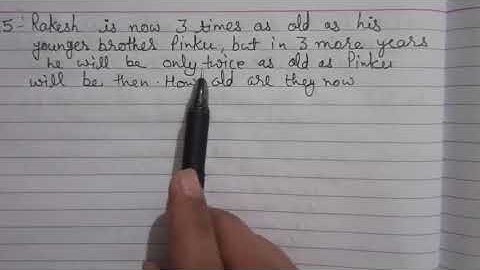 5:- Rakesh is now 3 times as old as his
younger brother Pinku, but in 3 more years
he will be only twice as old as Pinku
will be then. How old are they now